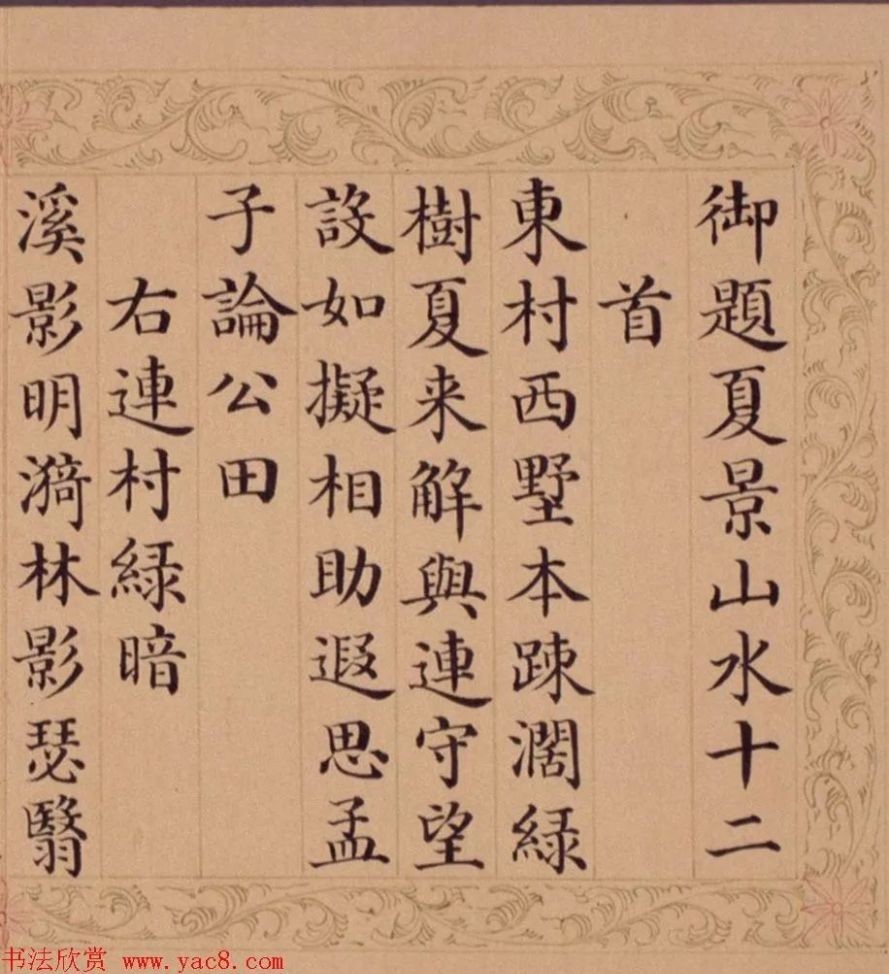 御題夏景山水十二
首
東村西墅本踈濶緑
樹夏来解與連守望
設如擬相助遐思孟
子論公田
右連村緑暗
溪影明漪林影瑟翳
书法欣赏 www.yac8.com